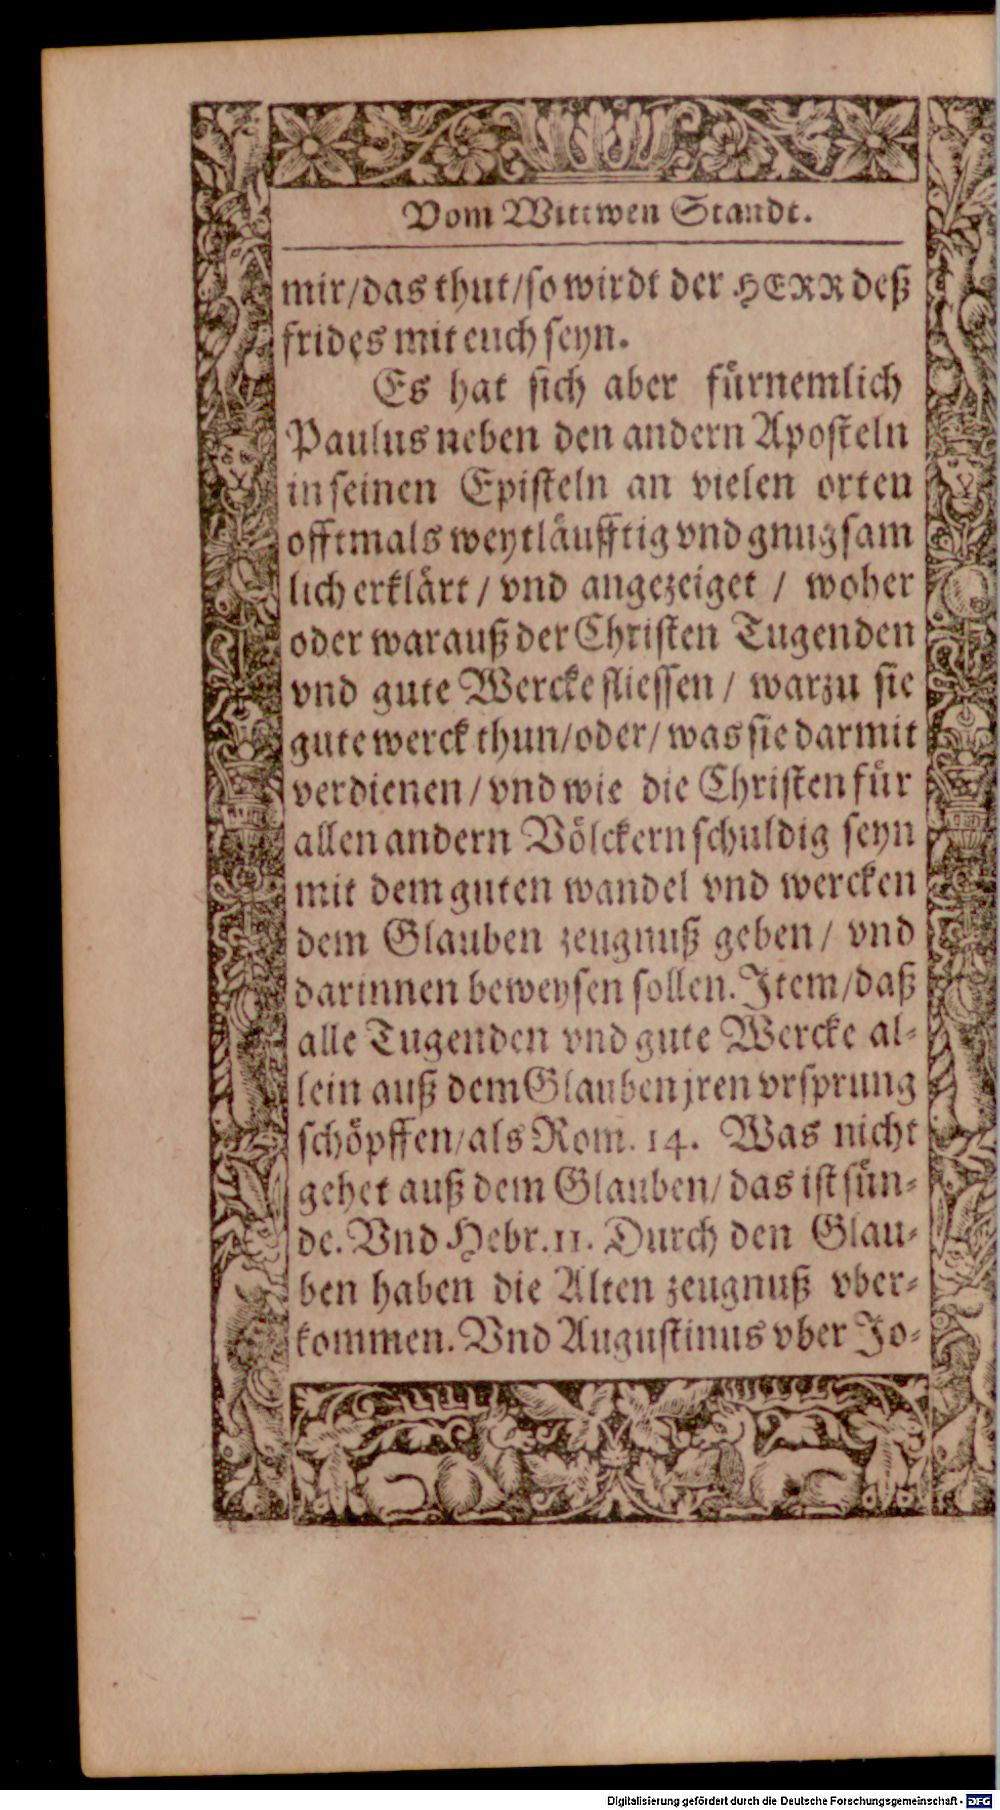 Vom Wittwen Standt.
mir/das thut/so wirdt der HERR deß
frides mit euch seyn.
Es hat sich aber fürnemlich
Paulus neben den andern Aposteln
in seinen Episteln an vielen orten
offtmals weytläufftig vnd gnugsam
lich erklärt / vnd angezeiget / woher
oder warauß der Christen Tugenden
vnd gute Wercke fliessen / warzu sie
gute werck thun/oder/ was sie darmit
verdienen / vnd wie die Christen für
allen andern Völckern schuldig seyn
mit dem guten wandel vnd wercken
dem Glauben zeugnuß geben / vnd
darinnen beweysen sollen. Item/daß
alle Tugenden vnd gute Wercke al-
lein auß dem Glauben jren vrsprung
schöpffen/als Rom. 14. Was nicht
gehet auß dem Glauben/ das ist sün-
de. Vnd Hebr. 11. Durch den Glau-
ben haben die Alten zeugnuß vber-
kommen. Vnd Augustinus vber Jo-
Digitalisierung gefördert durch die Deutsche Forschungsgemeinschaft - DFG